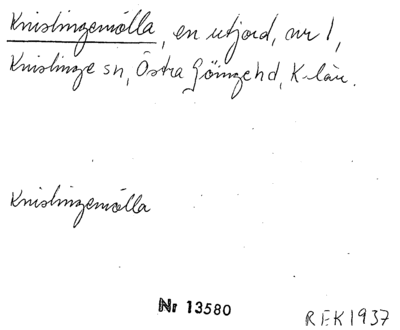 Knislingemölla, en utjord, nr 1,
Knislinge sn, Östra Göingehd, K-län.
Knislingemölla
Nr 13580
REK1937